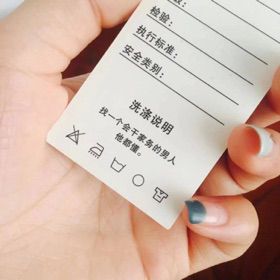 检验:
执行标准:
安全类别:
洗涤说明
找一个会干家务的男人
他都懂。